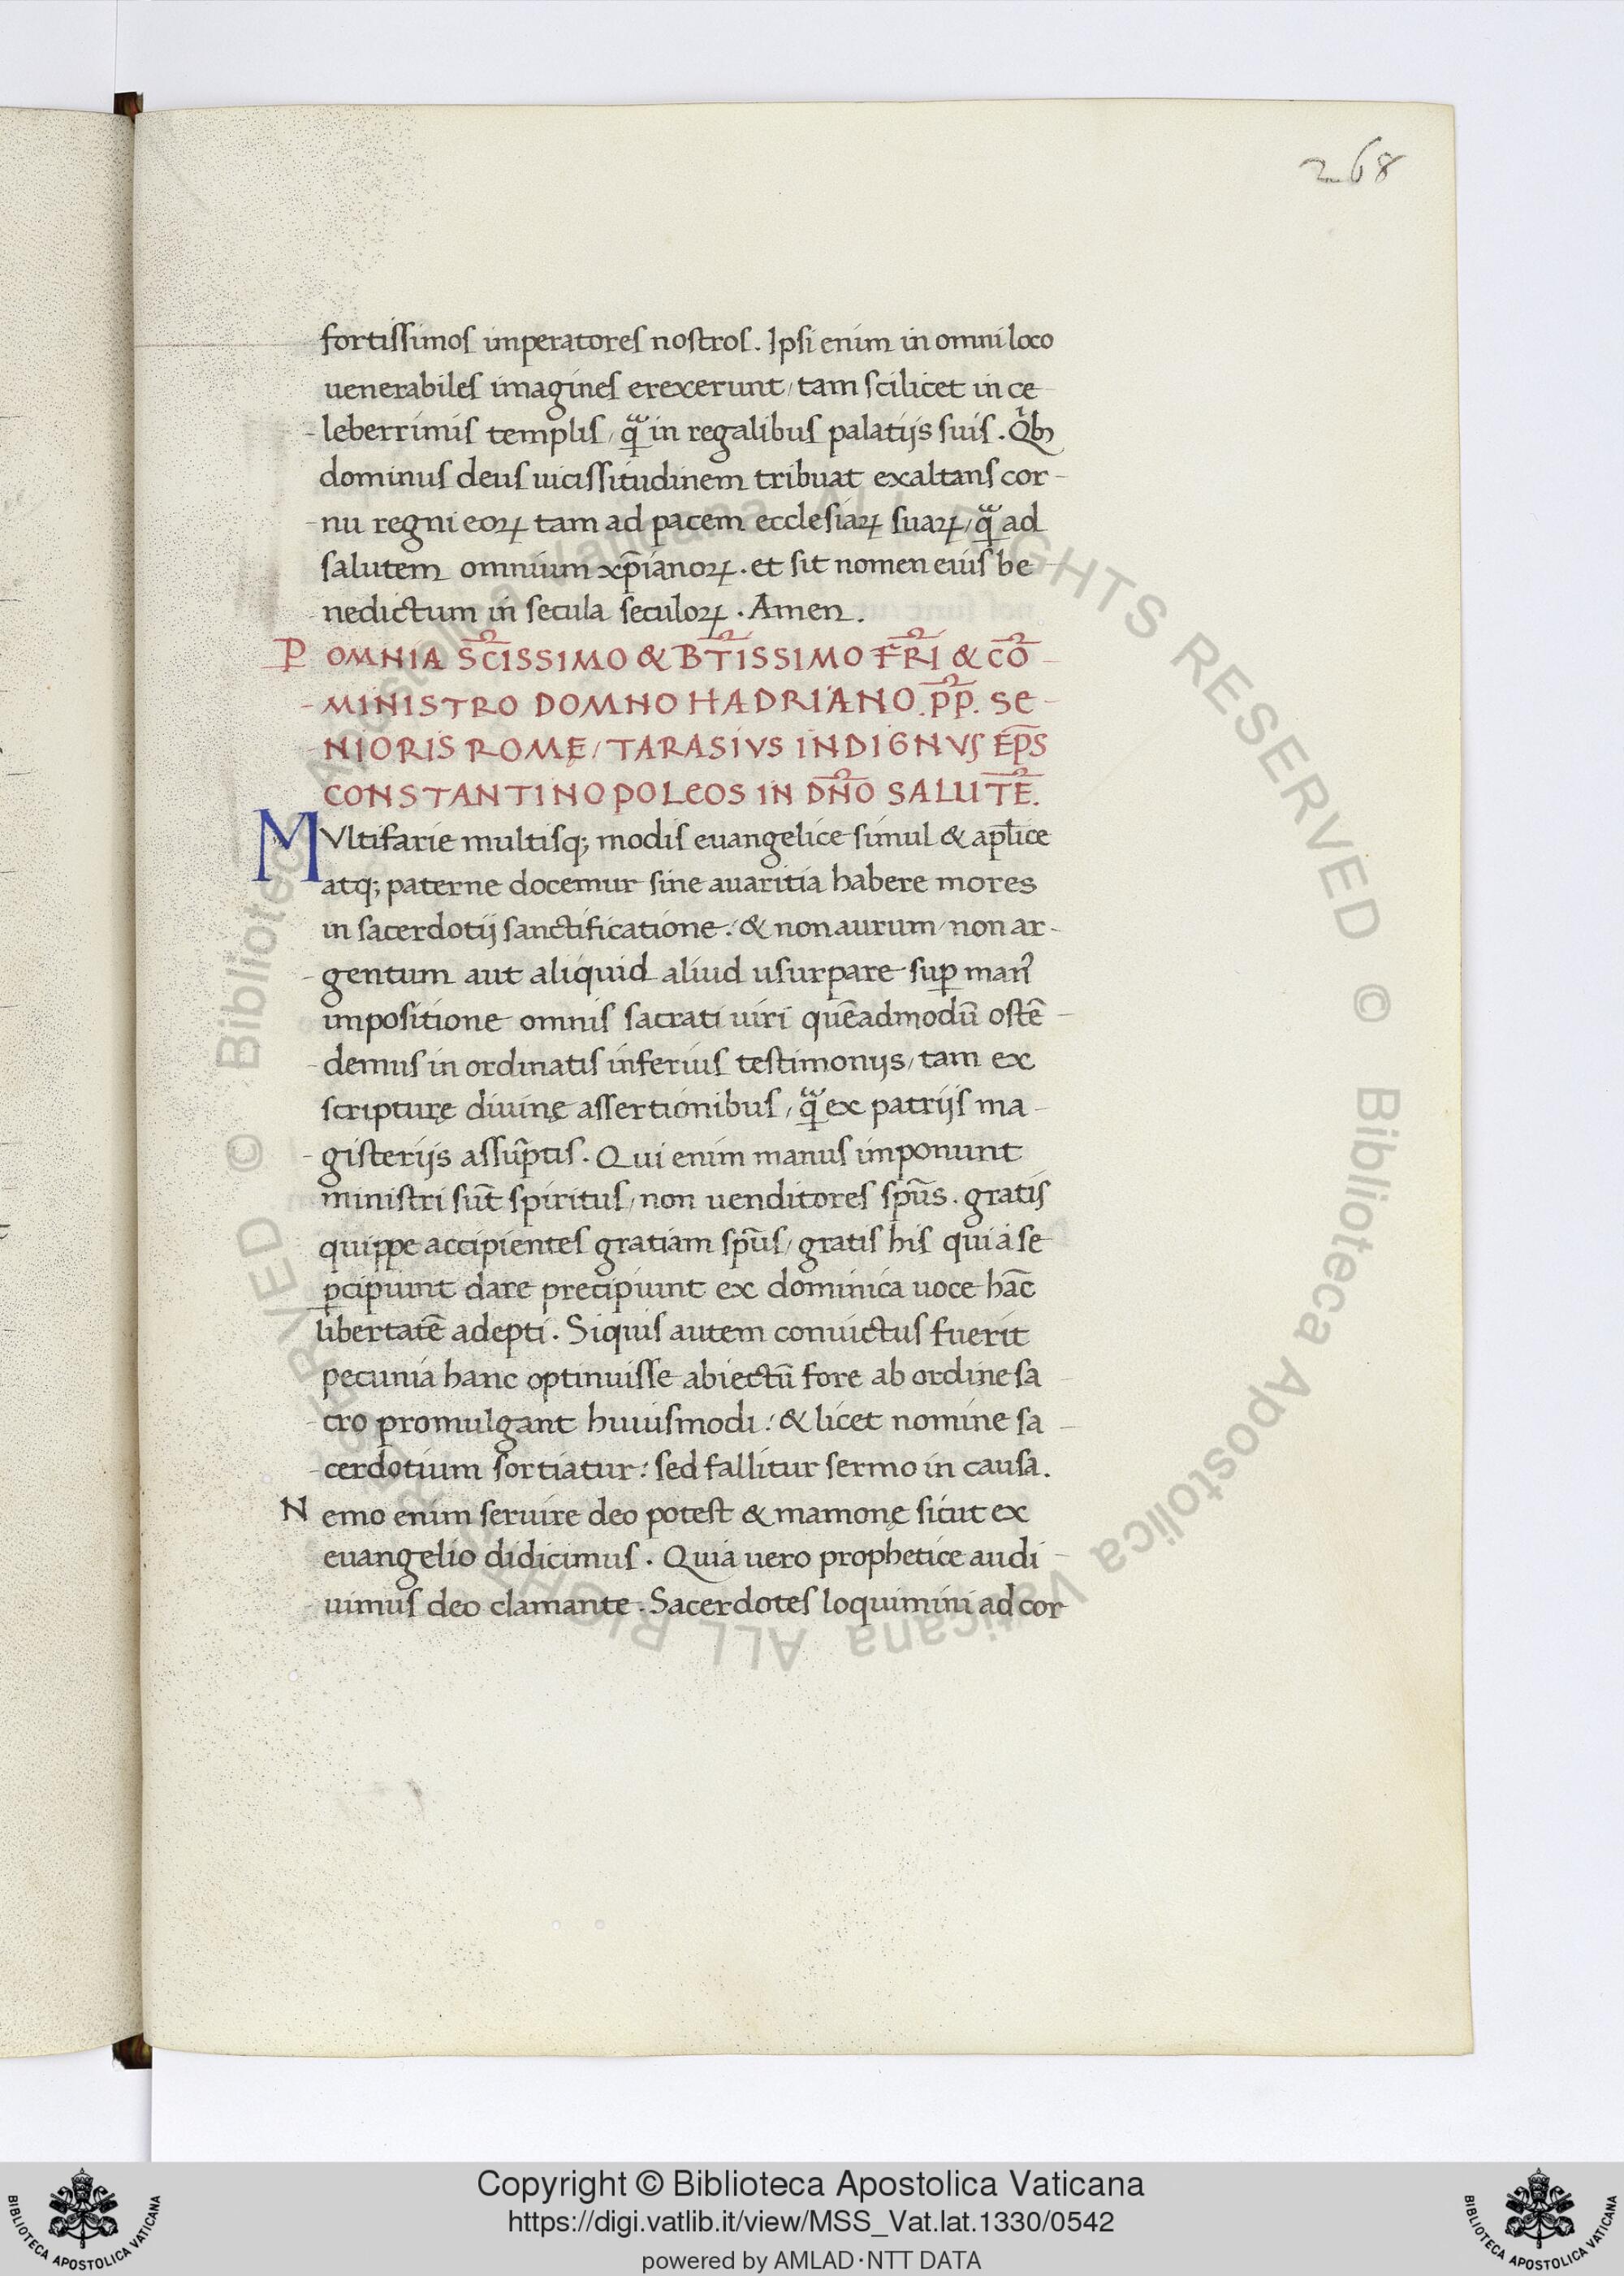 268
fortissimos imperatores nostros. Ipsi enim in omni loco
uenerabiles imagines erexerunt/ tam scilicet in ce
-leberrimis templis/ qᷓ in regalibus palatijs suis. Qͥbꝫ
dominus deus uicissitudinem tribuat exaltans cor-
-nu regni eoꝝ tam ad pacem ecclesiaꝝ suaꝝ/ qᷓ ad
salutem omnium xp̄ianoꝝ. et sit nomen eius be
nedictum in secula seculoꝝ. Amen.
P OMNIA SC̄ISSIMO & BT̄ISSIMO FR̄I & CŌ-
-MINISTRO DOMNO HADRIANO. PP̄. SE-
-NIORIS ROMĘ/ TARASIVS INDIGNVS EP̄S
CONSTANTINOPOLEOS IN DN̄O SALUTĒ.
MVltifarie multisq; modis euangelice simul & apl̄ice
atq; paterne docemur sine auaritia habere mores
in sacerdotij sanctificatione: & non aurum/ non ar-
-gentum aut aliquid aliud usurpare suꝑ man᾽
impositione omnis sacrati uiri quēadmodū ostē-
-demus in ordinatis inferius testimonijs/ tam ex
scripturę diuinę assertionibus/ qᷓ ex patrijs ma-
-gisterijs assūptis. Qui enim manus imponunt
ministri sūt spiritus/ non uenditores sp̄us. gratis
quippe accipientes gratiam sp̄us/ gratis his qui a se
ꝑcipiunt dare precipiunt ex dominica uoce hāc
libertatē adepti. Siquis autem conuictus fuerit
pecunia hanc optinuisse abiectū fore ab ordine sa-
-cro promulgant huiusmodi: & licet nomine sa-
-cerdotium sortiatur: sed fallitur sermo in causa.
N emo enim seruire deo potest & mamonę sicut ex
euangelio didicimus. Quia uero prophetice audi-
-uimus deo clamante. Sacerdotes loquimini ad cor
© Biblioteca Apostolica Vaticana ALL RIGHTS RESERVED © Biblioteca Apostolica Vaticana ALL RIGHTS RESERVED
BIBLIOTECA APOSTOLICA VATICANA
Copyright © Biblioteca Apostolica Vaticana
https://digi.vatlib.it/view/MSS_Vat.lat.1330/0542
powered by AMLAD·NTT DATA
BIBLIOTECA APOSTOLICA VATICANA